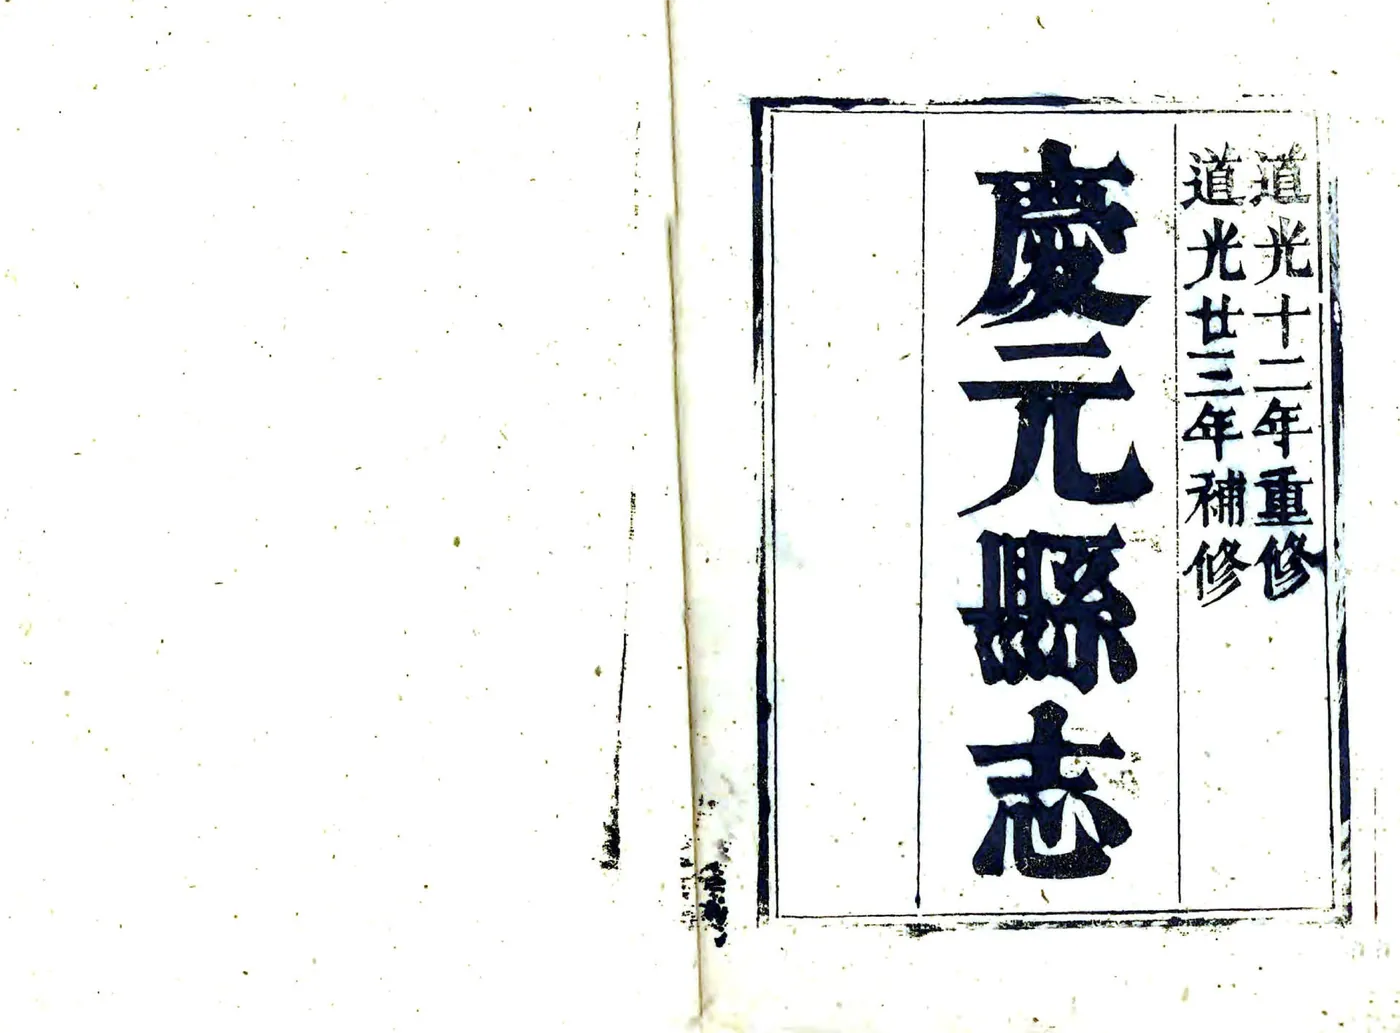 道光十二年重修
道光廿三年補修
慶元縣志